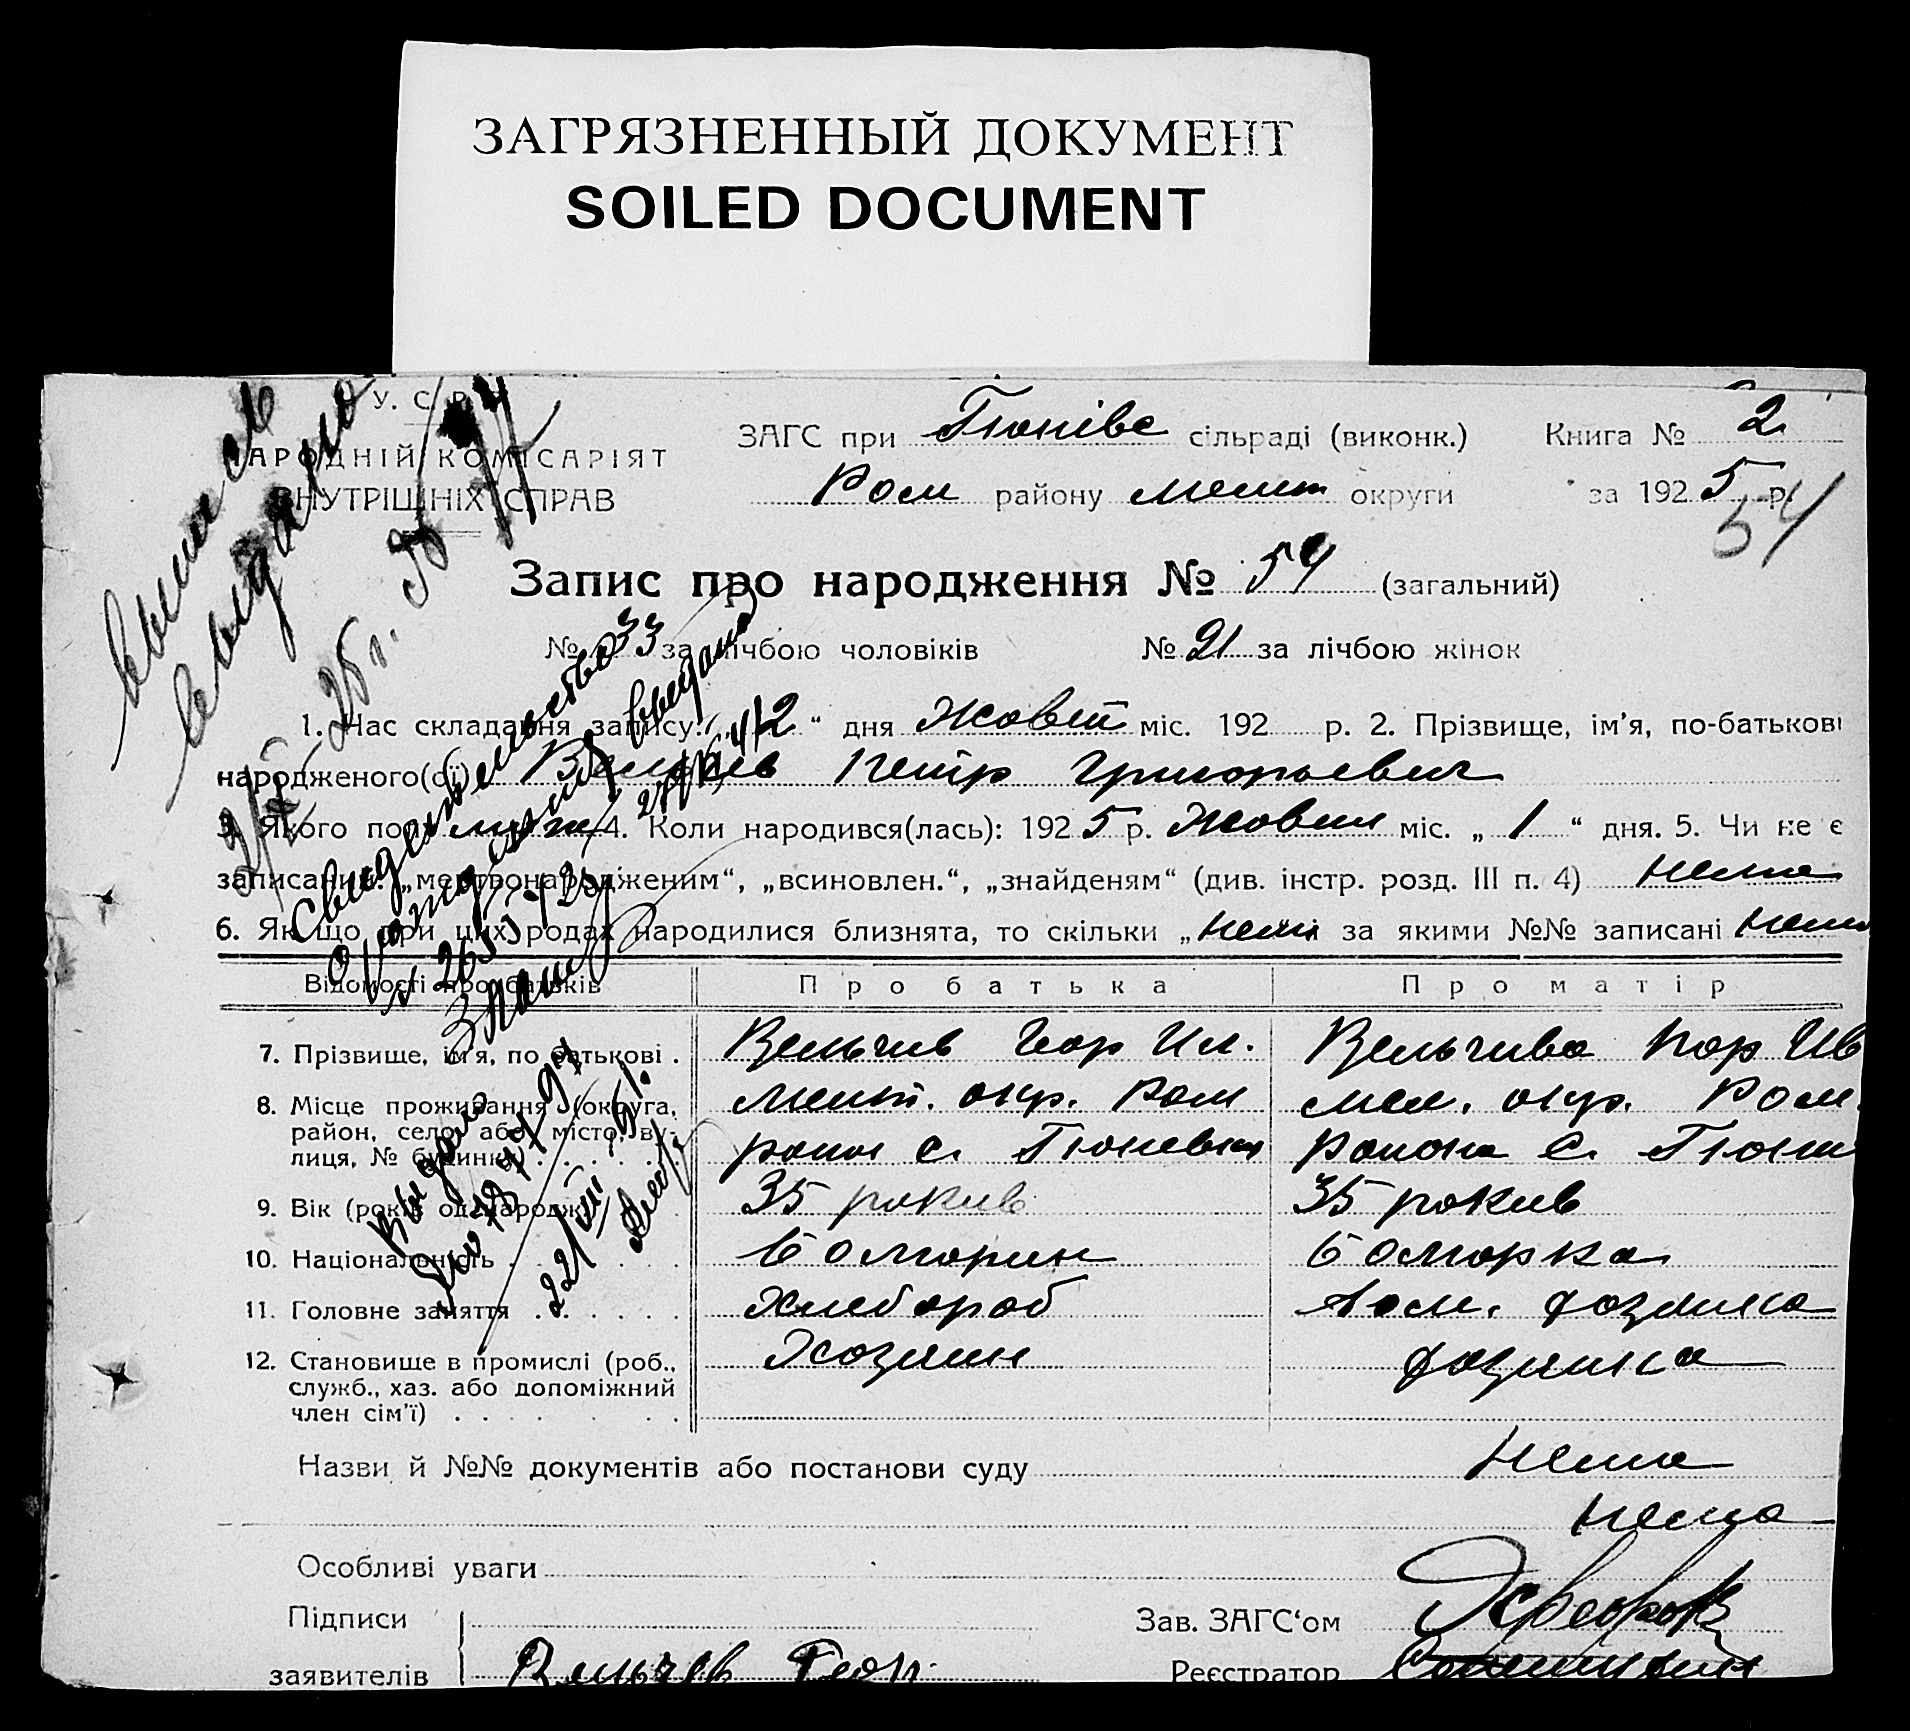 ЗАГРЯЗНЕННЫЙ ДОКУМЕНТ
SOILED DOCUMENT
У. С. Р. Р.
НАРОДНІЙ КОМІСАРІЯТ
ВНУТРІШНІХ СПРАВ
ЗАГС при Тюнівс сільраді (виконк.) Книга № 2
Ром району Меліт округи за 1925 р.
54
Запис про народження № 54 (загальний)
№ 33 за лічбою чоловіків № 21 за лічбою жінок
1. Час складання запису: „ 12 “ дня Жовт міс. 192 р. 2. Прізвище, ім’я, по-батькові
народженого(ої) Григорьевич
3. Якого полу 4. Коли народився(лась): 1925 р. Жовт міс. „ 1 “ дня. 5. Чи не є
записаним: „мертвонародженим“, „всиновлен.“, „знайденям“ (див. інстр. розд. III п. 4) нема
6. Якщо при цих родах народилися близнята, то скільки „ нема за якими №№ записані нема
Відомості про батьків Про батька Про матір
7. Прізвище, ім’я, по батькові . Вельчив Геор Ил. Вельчива Ив
8. Місце проживання (округа, Меліт. окр. Ром Мел. окр. Ром.
район, село або місто, ву- район с. Тюневка района с. Тюни
лиця, № будинку) . . . . .
9. Вік (років од народж.) . . 35 рокив 35 рокив
10. Національність . . . . . болгарин болгорка
11. Головне заняття . . . . . Хлебороб дом. хозяика
12. Становище в промислі (роб., Хозяин хозяика
служб., хаз. або допоміжний
член сім’ї) . . . . . . .
Назви й №№ документів або постанови суду нема
нема
Особливі уваги
Підписи Зав. ЗАГС‘ом
заявителів Вельчев Геор. Реєстратор
выпись
выдана
Свидетельство
о рождении выдано
Выдано